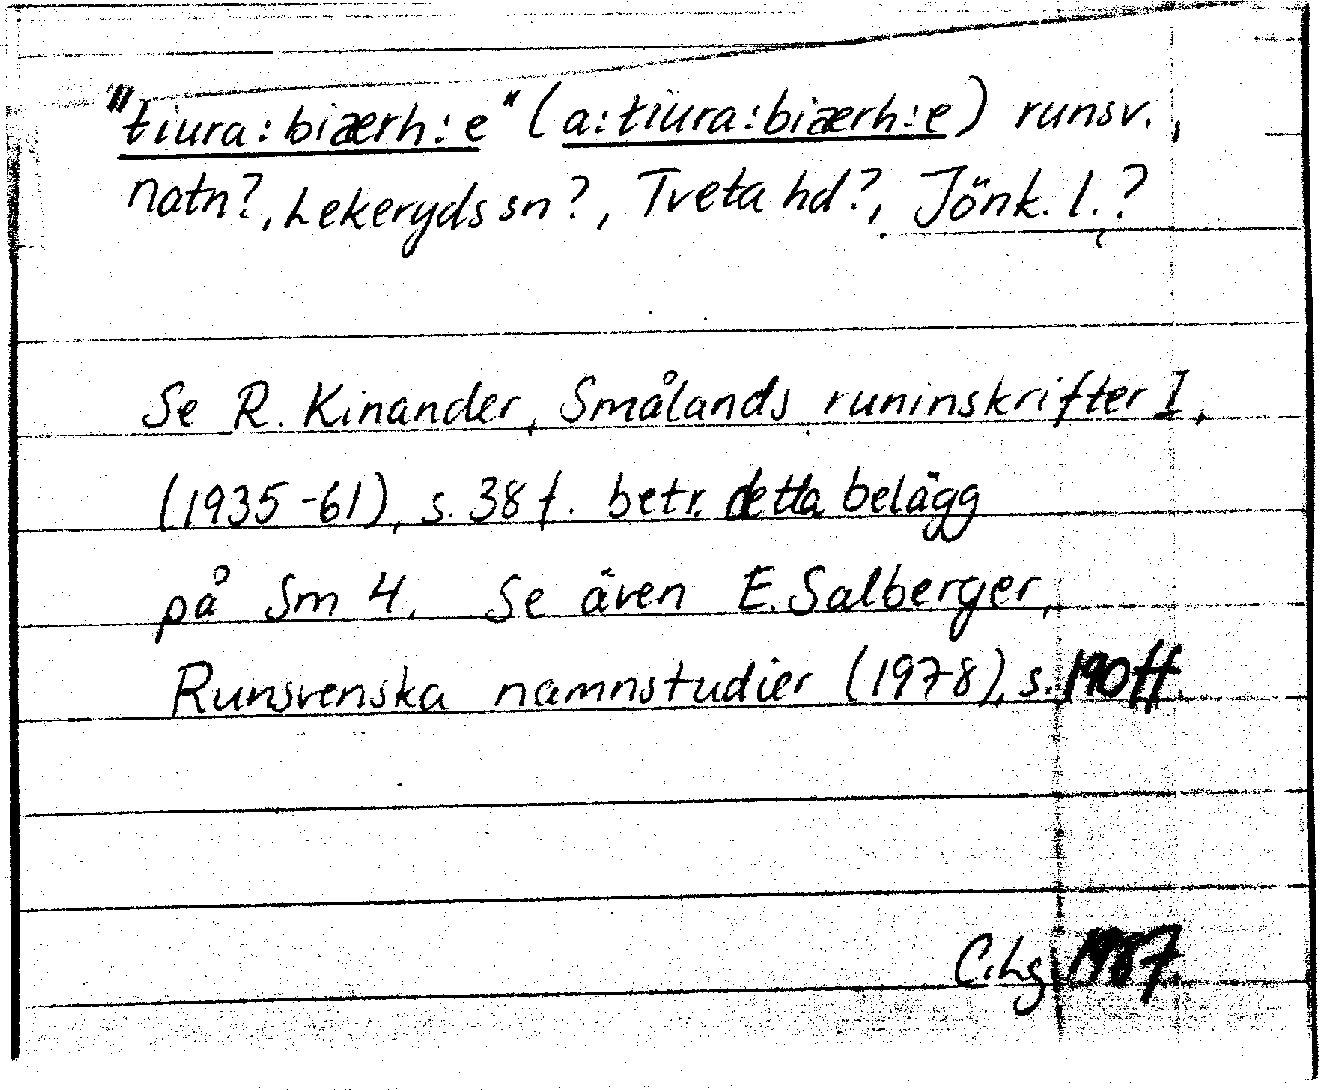 "tiura:biærh:e" (a:tiura:biærh:e) runsv.,
natn?, Lekeryds sn?, Tveta hd?, Jönk. l.?
Se R. Kinander, Smålands runinskrifter I,
(1935-61), s. 38 f. betr. detta belägg
på Sm 4. Se även E. Salberger,
Runsvenska namnstudier (1978), s. 190 ff.
C.Lg 1987.